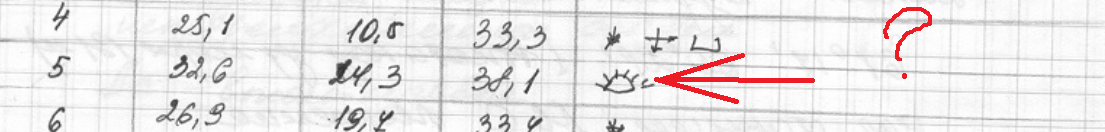 4 25,1 10,5 33,3 * ?
5 32,6 24,3 38,1
6 26,9 19,7 33,4 *